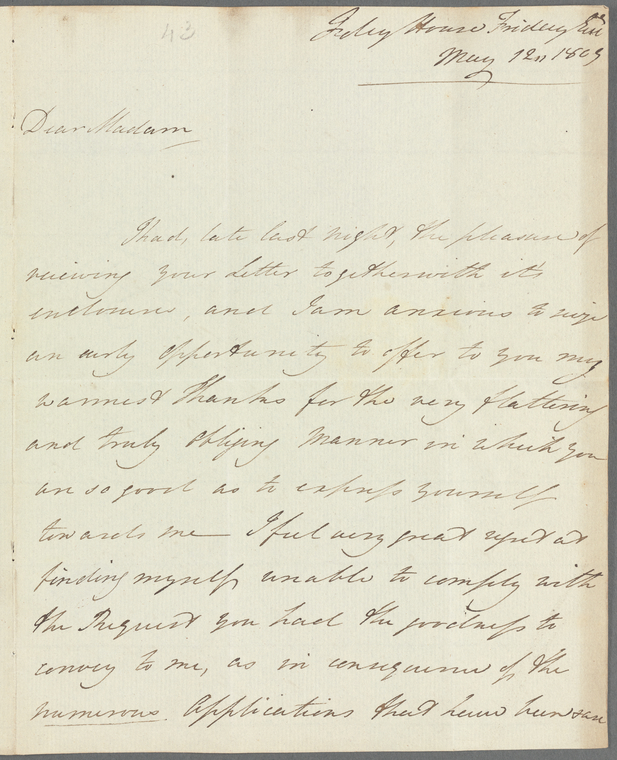 43
Foley House Friday Eve
May 12th 1809
Dear Madam
I had, late last night, the pleasure of
receiving your Letter together with its
enclosure, and I am anxious to seize
an early opportunity to offer to you my
warmest thanks for the very flattering
and truly obliging Manner in which you
are so good as to express yourself
towards me — I feel very great regret at
finding myself unable to comply with
the Request you had the goodness to
convey to me, as in consequence of the
numerous Applications that have been